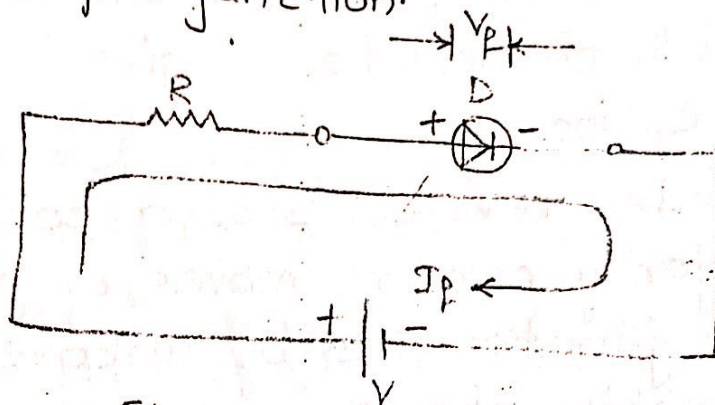 junction.
Vp
R
D
+ -
Ip
+ -
V